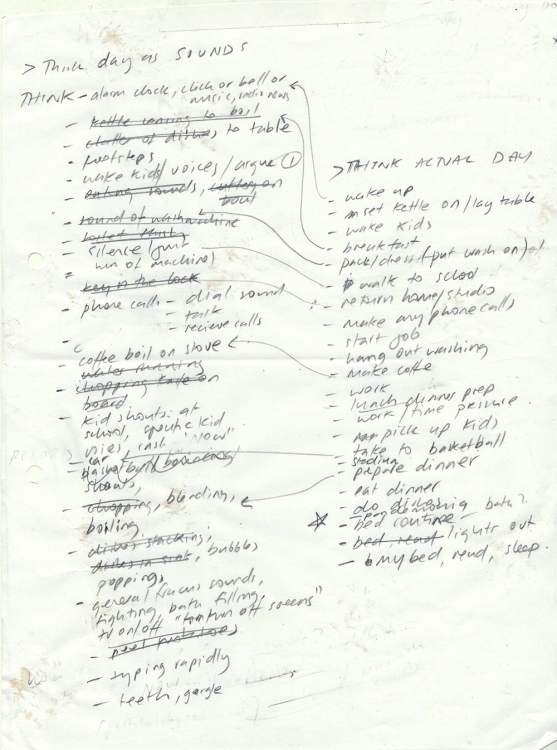 > Think day as SOUNDS
THINK - alarm clock, click or bell or
music, radio news
- kettle coming to boil
- clatter of dishes to table
- footsteps
- wake kids / voices / argue ①
- eating sounds, cutlery on
bowl
- sound of washmachine
- toilet flush
- silence
hum of machines
key in the lock
- phone calls - dial sound
- talk
- recieve calls
- coffee boil on stove
- water running
- chopping knife on
board
- kid shouts at
school, specific kid
"Now"
- car
- basketball bouncing
shouts,
- chopping, blending,
boiling,
- dishes stacking,
dishes in sink, bubbles
popping,
- general fracus sounds,
fighting, bath filling,
tv on/off "turn off screens"
-
- typing rapidly
- teeth, gargle
> THINK ACTUAL DAY
- wake up
- set kettle on / lay table
- wake kids
- breakfast
- pack / dress (put wash on)
- walk to school
- return home/studio
- make any phone calls
- start job
- hang out washing
- make coffe
- work
- lunch dinner prep
- work / time pressure
- pick up kids
- take to basketball
- prepare dinner
- eat dinner
- do dishes
bath?
- bed routine
- bed, read lights out
- my bed, read, sleep.